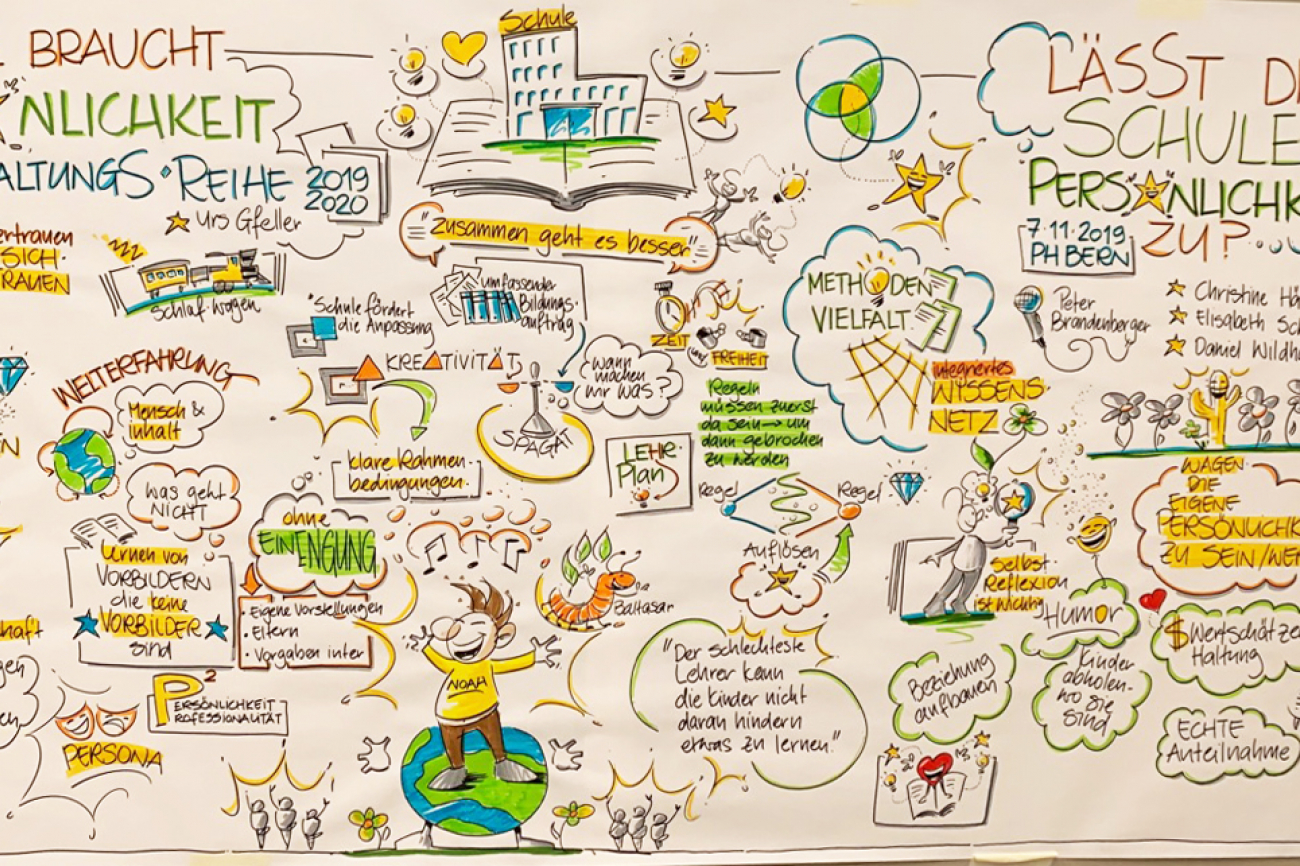 BRAUCHT
NLICHKEIT
ALTUNGS•REIHE 2019
2020
Urs Gfeller
ertrauen
SICH
RAUEN
Schlafwagen
WELTERFAHRUNG
Mensch &
inhalt
was geht
NICHT
lernen von
VORBILDERN
die keine
VORBILDER
sind
P2
PERSÖNLICHKEIT
PROFESSIONALITÄT
PERSONA
haft
Schule
"Zusammen geht es besser"
"Schule fördert
die Anpassung
umfassender
Bildungs-
auftrag
KREATIVITÄT
SPAGAT
wann
machen
wir was?
klare Rahmen-
bedingungen
ohne
EINENGUNG
• Eigene Vorstellungen
• Eltern
• Vorgaben inter
NOAH
Baltasar
ZEIT
FREIHEIT
Regeln
müssen zuerst
da sein → um
dann gebrochen
zu werden
LEHR
Plan
Regel
Regel
Auflösen
"Der schlechteste
Lehrer kann
die Kinder nicht
daran hindern
etwas zu lernen."
METHODEN
VIELFALT
integriertes
WISSENS
NETZ
Selbst-
Reflexion
ist wichtig
Humor
Beziehung
aufbauen
Kinder
abholen-
wo sie
sind
LÄSST DI
SCHULE
PERSÖNLICHK
ZU?
7•11•2019
PH BERN
Peter
Brandenberger
Christine Hä
Elisabeth Sc
Daniel Wildh
WAGEN
DIE
EIGENE
PERSÖNLICHK
ZU SEIN/WE
Wertschätze
Haltung
ECHTE
Anteilnahme